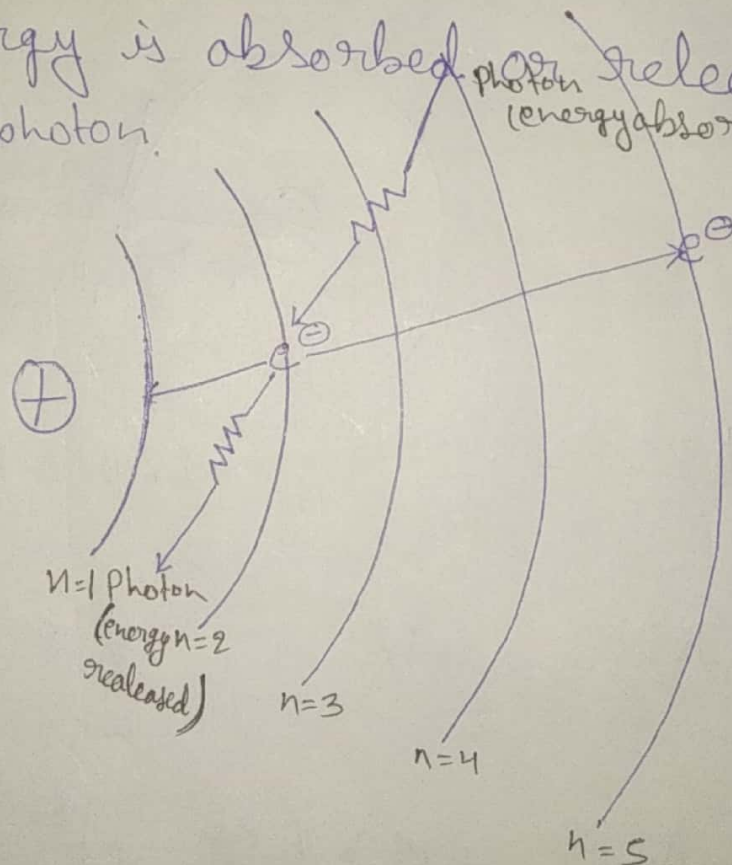 rgy is absorbed or relea
photon.
photon
(energy absor
⊖
⊖
e
e
+
n=1 Photon
(energy n=2
realeased)
n=3
n=4
n=5